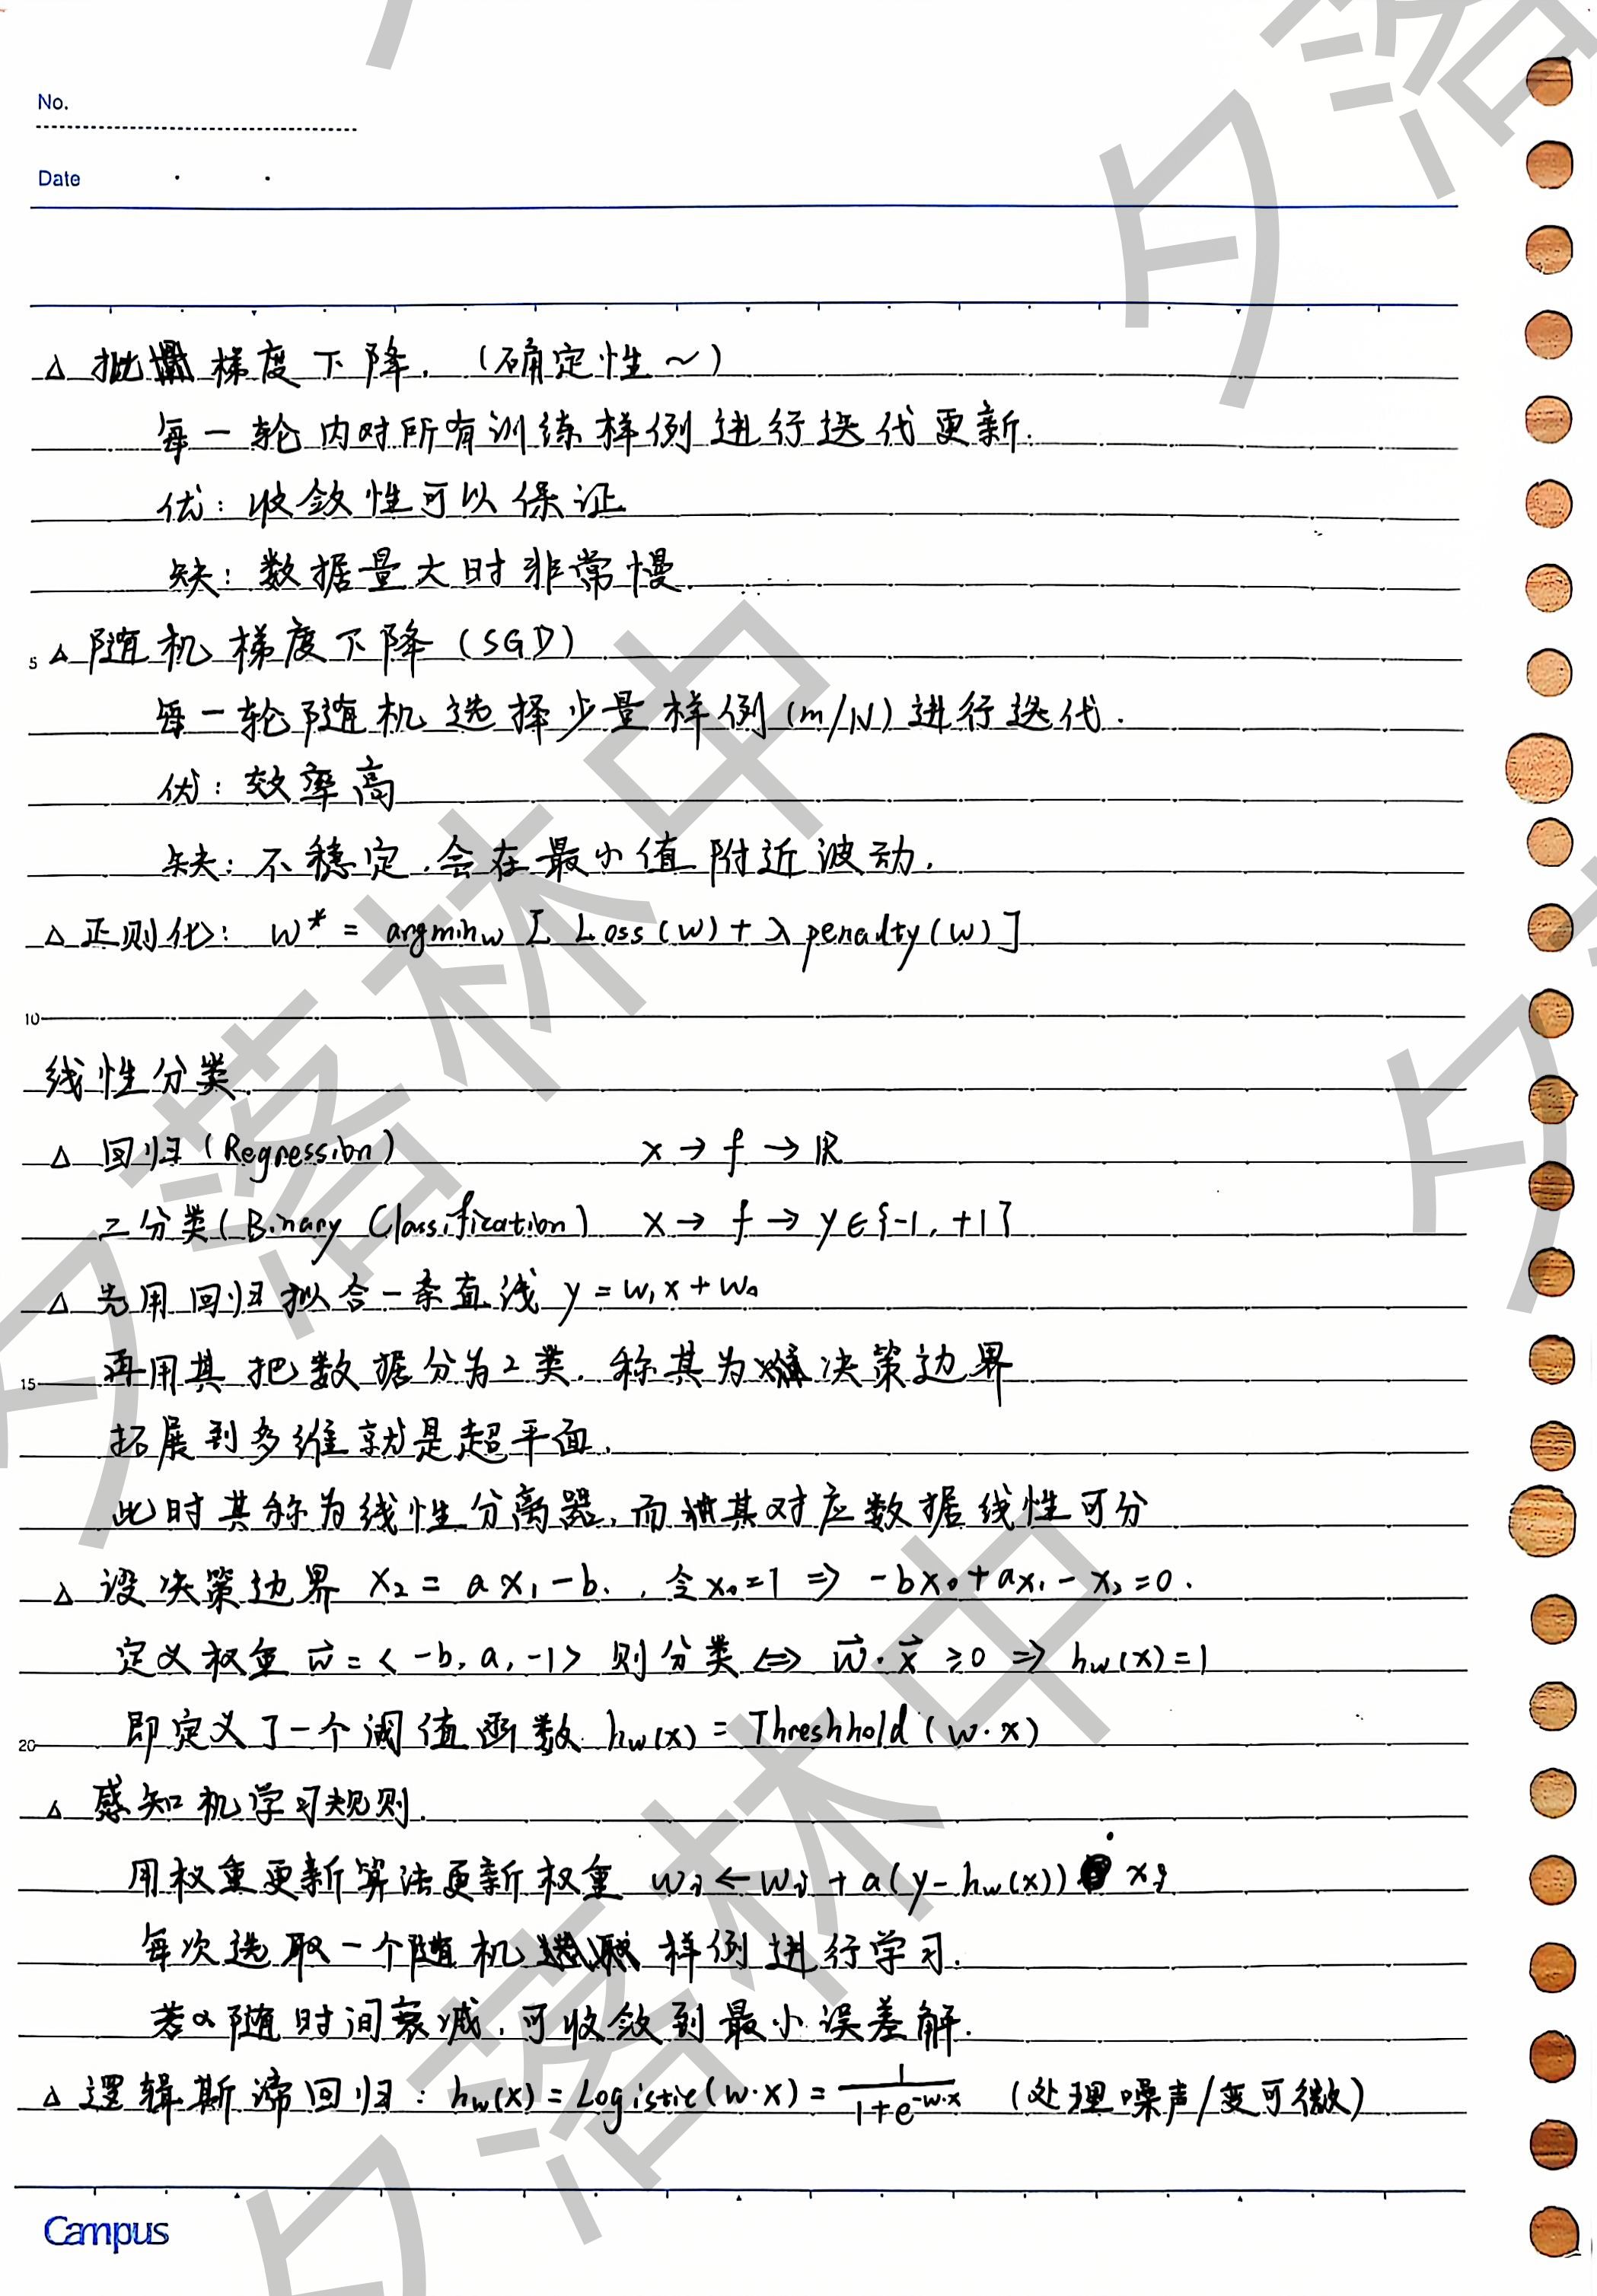 No.
Date
△ 批量梯度下降.（确定性～）
每一轮内对所有训练样例进行迭代更新.
优：收敛性可以保证
缺：数据量大时非常慢.
5 △ 随机梯度下降（SGD）
每一轮随机选择少量样例（m/N）进行迭代.
优：效率高
缺：不稳定.会在最小值附近波动.
△ 正则化： w* = argmin_w [ Loss(w) + λ penalty(w) ]
10
线性分类.
△ 回归（Regression） x → f → ℝ
二分类（Binary Classification） x → f → y∈{-1, +1}
△ 先用回归拟合一条直线 y = w₁x + w₀
15 再用其把数据分为2类. 称其为决策边界
拓展到多维就是超平面.
此时其称为线性分离器, 而其对应数据线性可分
△ 设决策边界 x₂ = ax₁ - b. , 令x₀=1 ⇒ -bx₀+ax₁-x₂=0.
定义权重 w⃗ = < -b, a, -1> 则分类 ⇔ w⃗·x⃗ ≥0 ⇒ h_w(x)=1
20 即定义了一个阈值函数 h_w(x) = Threshhold (w·x)
△ 感知机学习规则.
用权重更新算法更新权重 w_j ← w_j + a(y-h_w(x)) x_j
每次选取一个随机样例进行学习.
若α随时间衰减, 可收敛到最小误差解.
△ 逻辑斯谛回归： h_w(x) = Logistic(w·x) = 1/(1+e^(-w·x)) （处理噪声/变可微）
Campus
夕落林中
夕落林中
夕落
夕